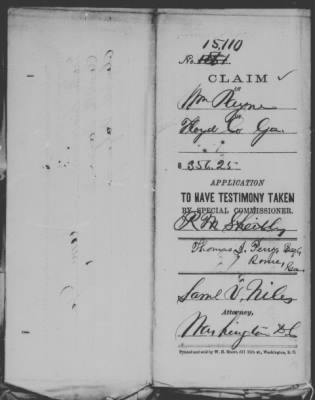 15,110
No. 1881.
CLAIM
of
Wm Payne
of
Floyd Co Ga.
$ 356.25
APPLICATION
TO HAVE TESTIMONY TAKEN
BY SPECIAL COMMISSIONER.
Thomas J. Perry
Rome,
Ga.
Saml V. Niles
Attorney,
Washington D.C.
Printed and sold by W. H. Moore, 511 11th st., Washington, D. C.